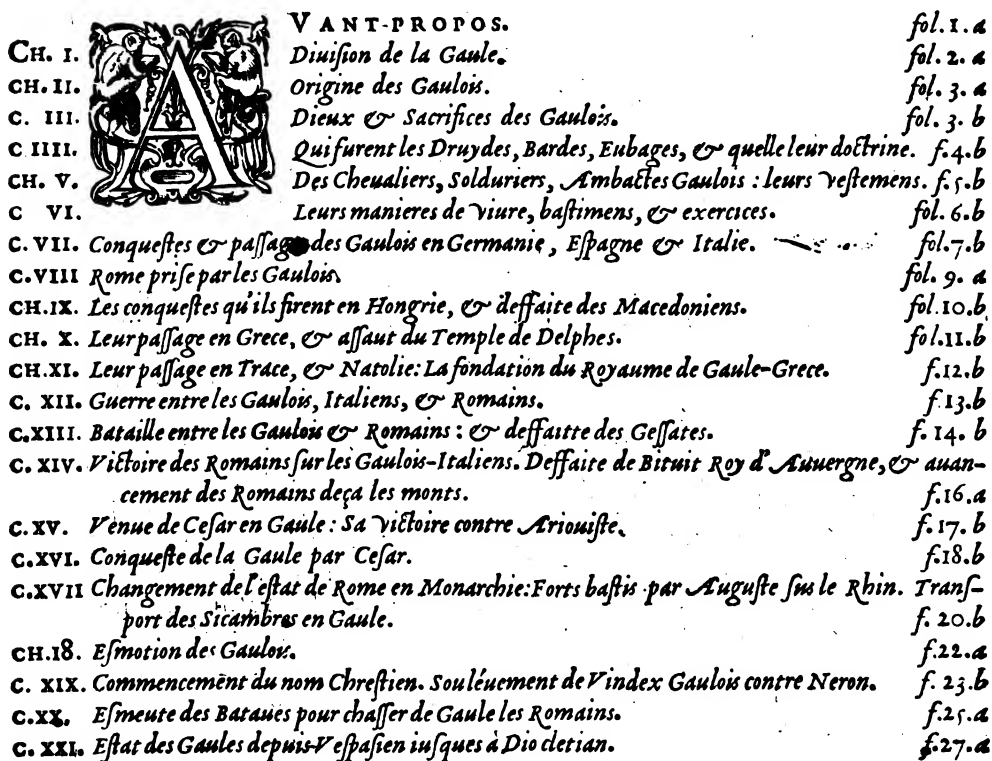 AVANT-PROPOS. fol. 1. a
CH. I. Diuiſion de la Gaule. fol. 2. a
CH. II. Origine des Gaulois. fol. 3. a
C. III. Dieux & Sacrifices des Gaulois. fol. 3. b
C IIII. Qui furent les Druydes, Bardes, Eubages, & quelle leur doctrine. f. 4. b
CH. V. Des Cheualiers, Solduriers, Ambactes Gaulois : leurs veſtemens. f. 5. b
C VI. Leurs manieres de viure, baſtimens, & exercices. fol. 6. b
C. VII. Conqueſtes & paſſage des Gaulois en Germanie, Eſpagne & Italie. fol. 7. b
C. VIII Rome priſe par les Gaulois. fol. 9. a
CH. IX. Les conqueſtes qu'ils firent en Hongrie, & deffaite des Macedoniens. fol. 10. b
CH. X. Leur paſſage en Grece, & aſſaut du Temple de Delphes. fol. 11. b
CH. XI. Leur paſſage en Trace, & Natolie: La fondation du Royaume de Gaule-Grece. f. 12. b
C. XII. Guerre entre les Gaulois, Italiens, & Romains. f. 13. b
C. XIII. Bataille entre les Gaulois & Romains : & deffaitte des Geſſates. f. 14. b
C. XIV. Victoire des Romains ſur les Gaulois-Italiens. Deffaite de Bituit Roy d'Auuergne, & auan-
cement des Romains deça les monts. f. 16. a
C. XV. Venue de Ceſar en Gaule : Sa victoire contre Ariouiſte. f. 17. b
C. XVI. Conqueſte de la Gaule par Ceſar. f. 18. b
C. XVII Changement de l'eſtat de Rome en Monarchie: Forts baſtis par Auguſte ſus le Rhin. Tranſ-
port des Sicambres en Gaule. f. 20. b
CH. 18. Eſmotion des Gaulois. f. 22. a
C. XIX. Commencemēt du nom Chreſtien. Souléuement de Vindex Gaulois contre Neron. f. 23. b
C. XX. Eſmeute des Bataues pour chaſſer de Gaule les Romains. f. 25. a
C. XXI. Eſtat des Gaules depuis Veſpaſien iuſques à Diocletian. f. 27. a